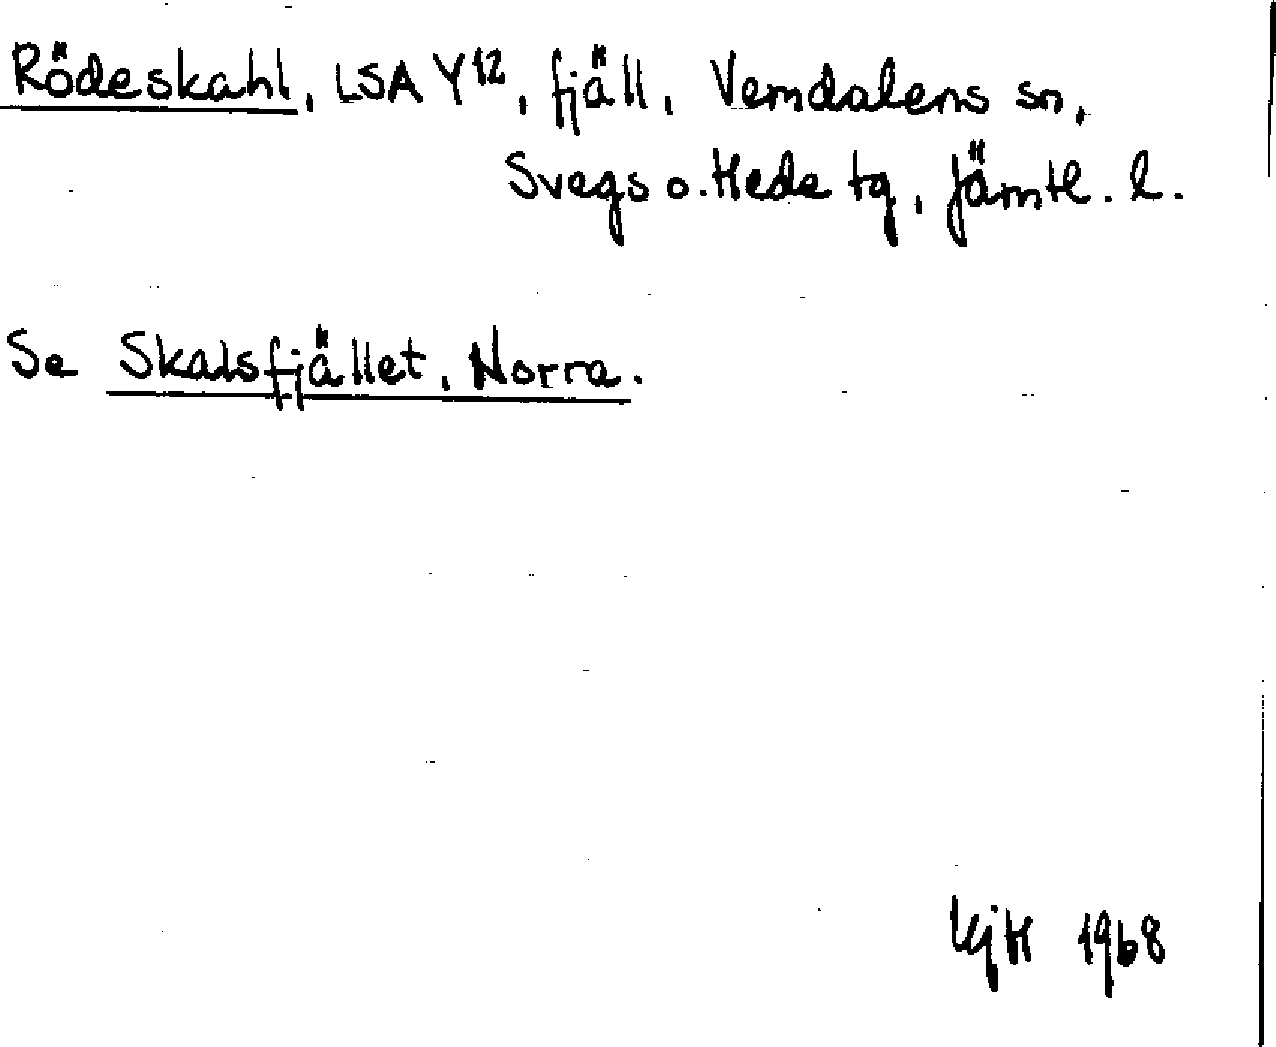 Rödeskahl, LSA Y12, fjäll, Vemdalens sn,
Svegs o. Hede tg, Jämtl. l.
Se Skalsfjället, Norra.
KjH 1968